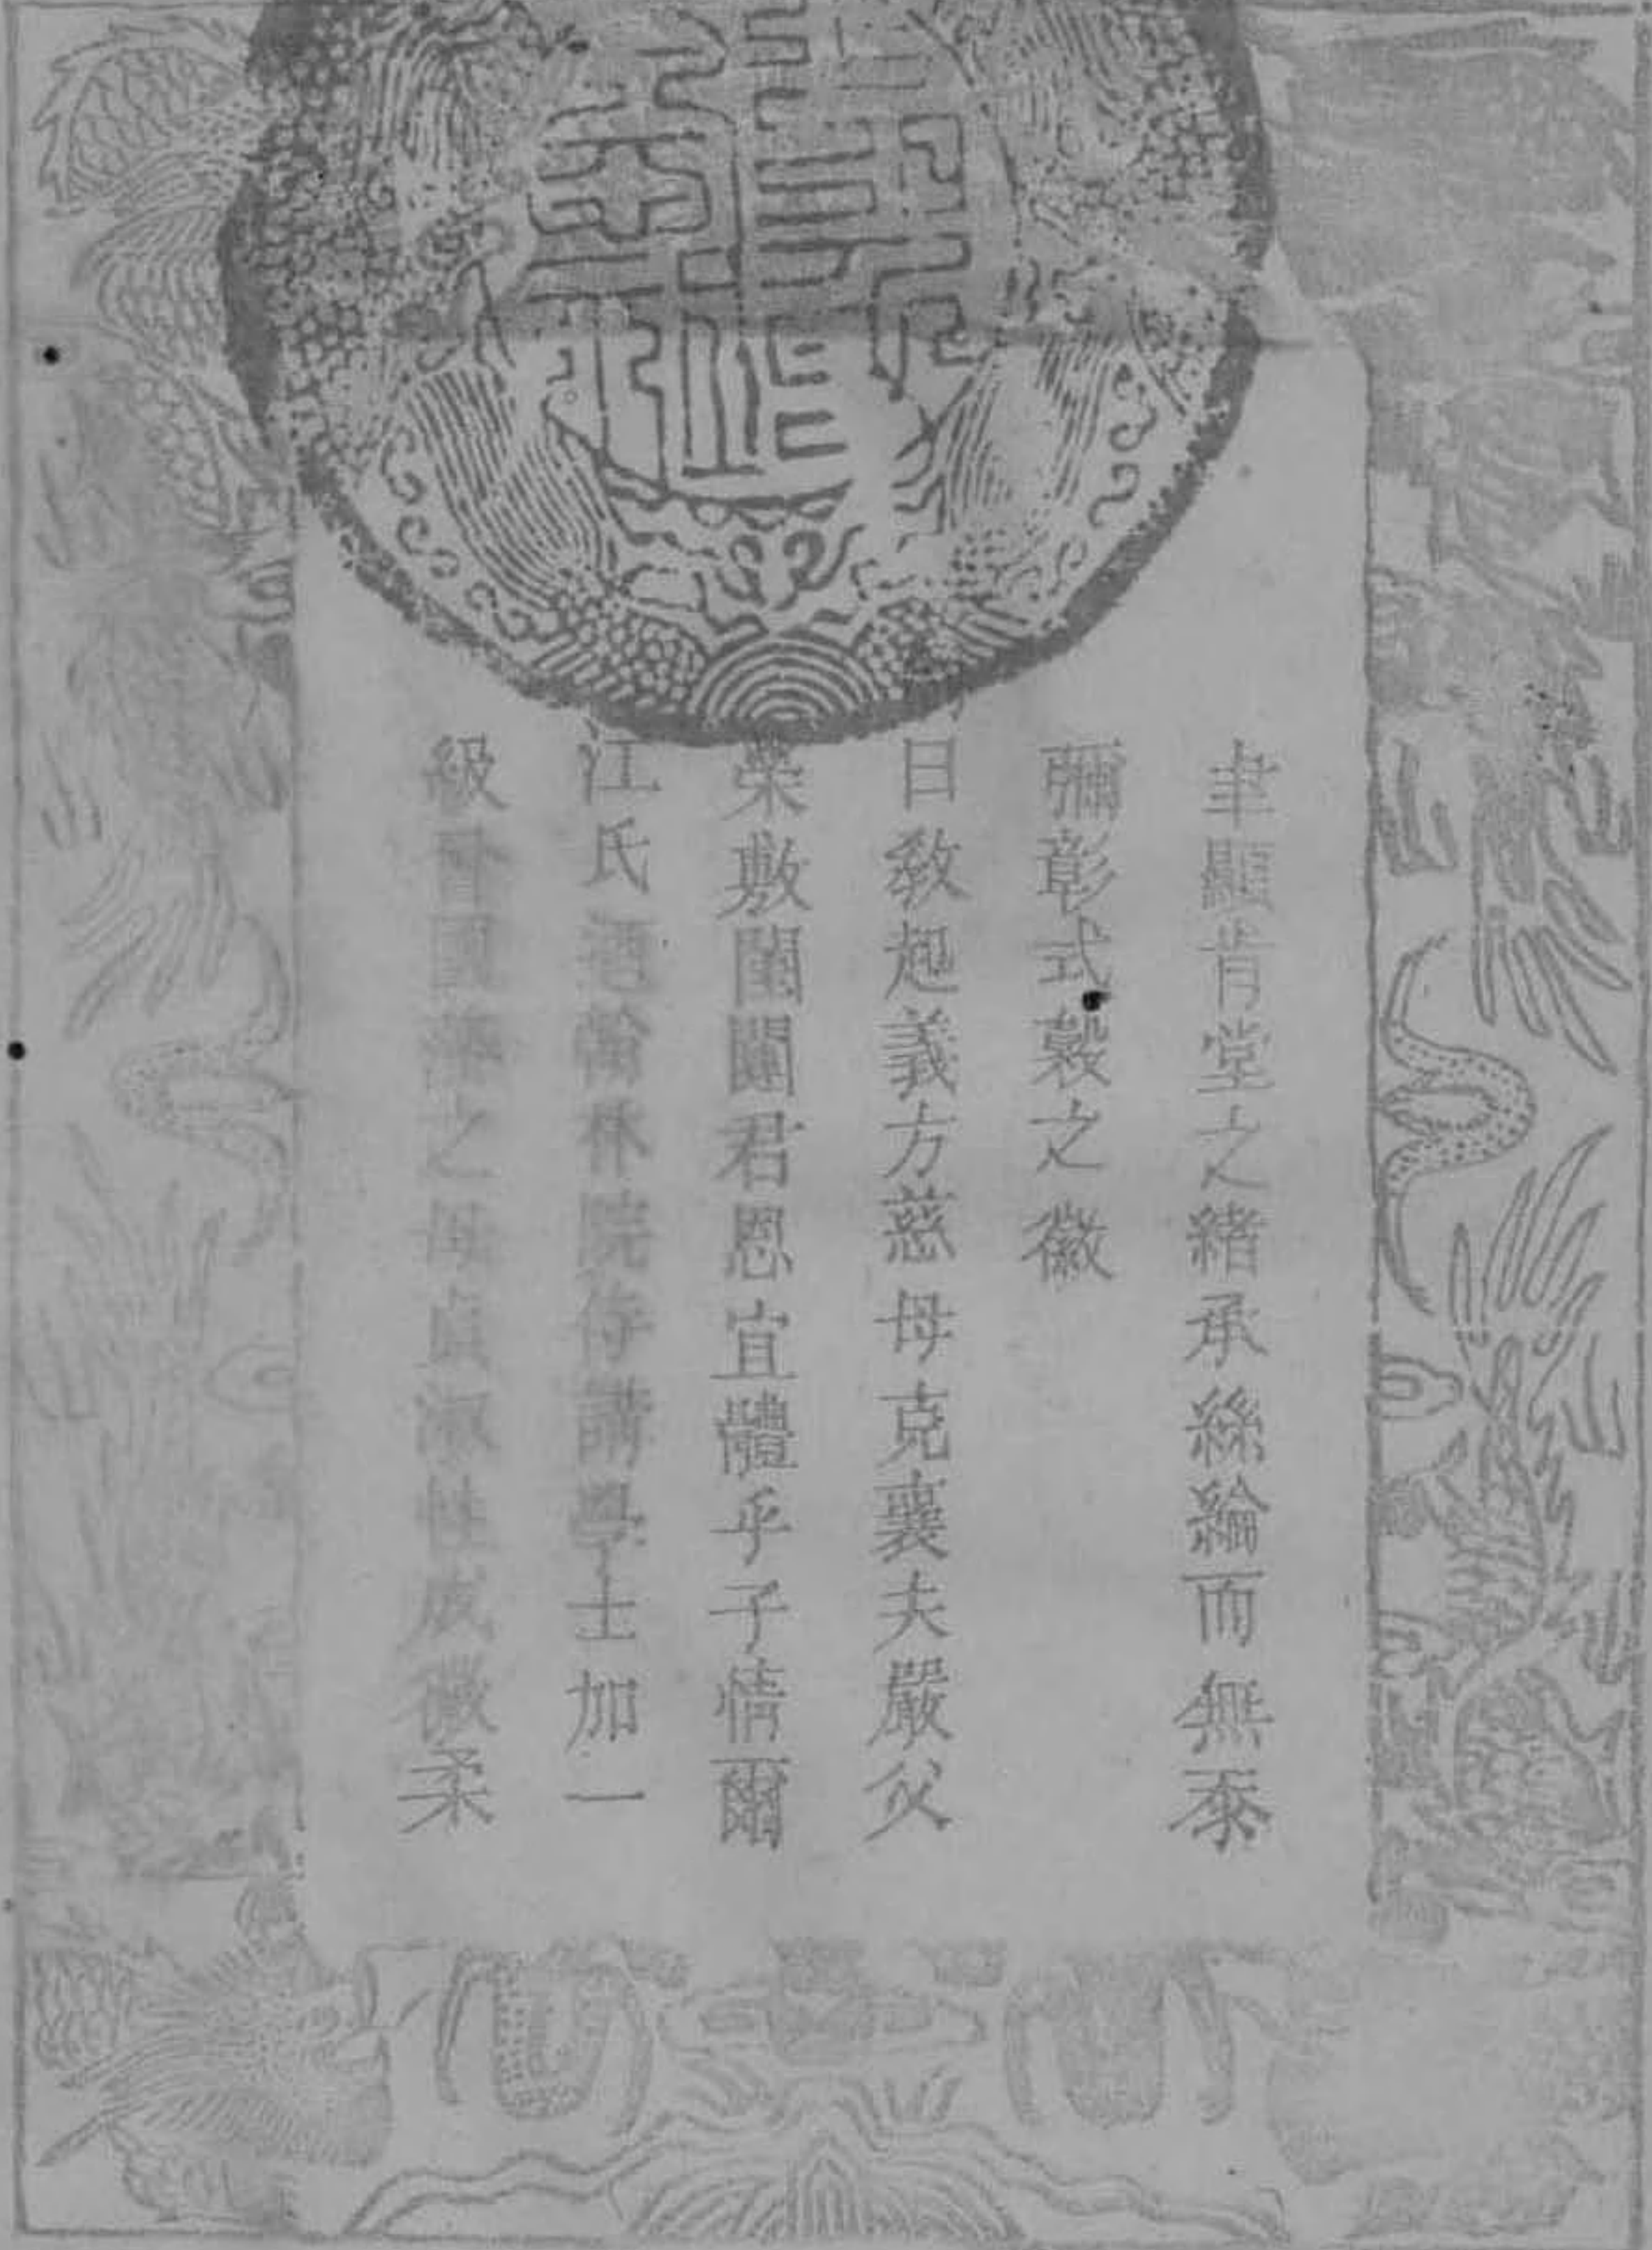 聿顯肯堂之緒承絲綸而無忝
彌彰式榖之徽
曰敎起義方慈母克襄夫嚴父
榮敷閨闥君恩宜體乎子情爾
江氏迺翰林院侍講學士加一
級之母貞淑性成徽柔